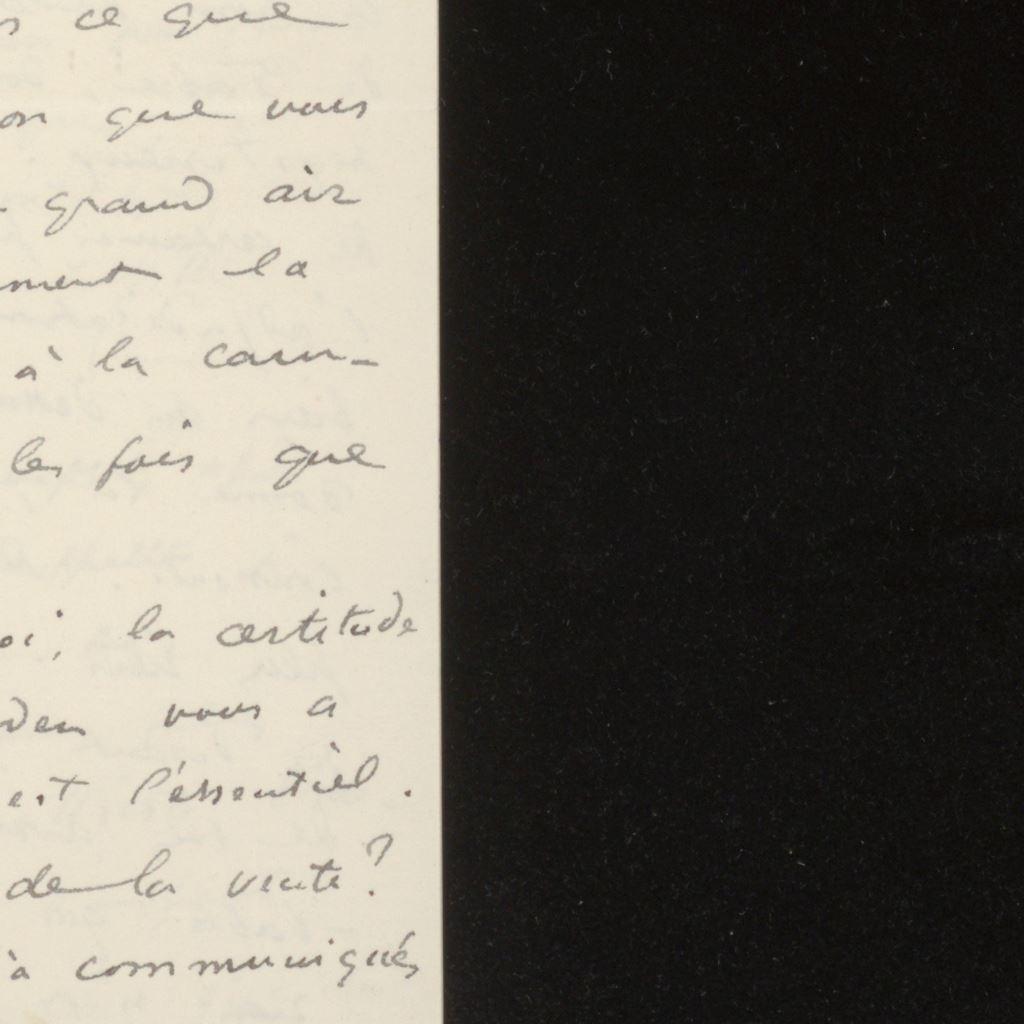 s ce que
on que vous
grand air
ment la
à la cam-
les fois que
oi, la certitude
den vous a
est l'éssentiel.
de la vente?
à communiqués